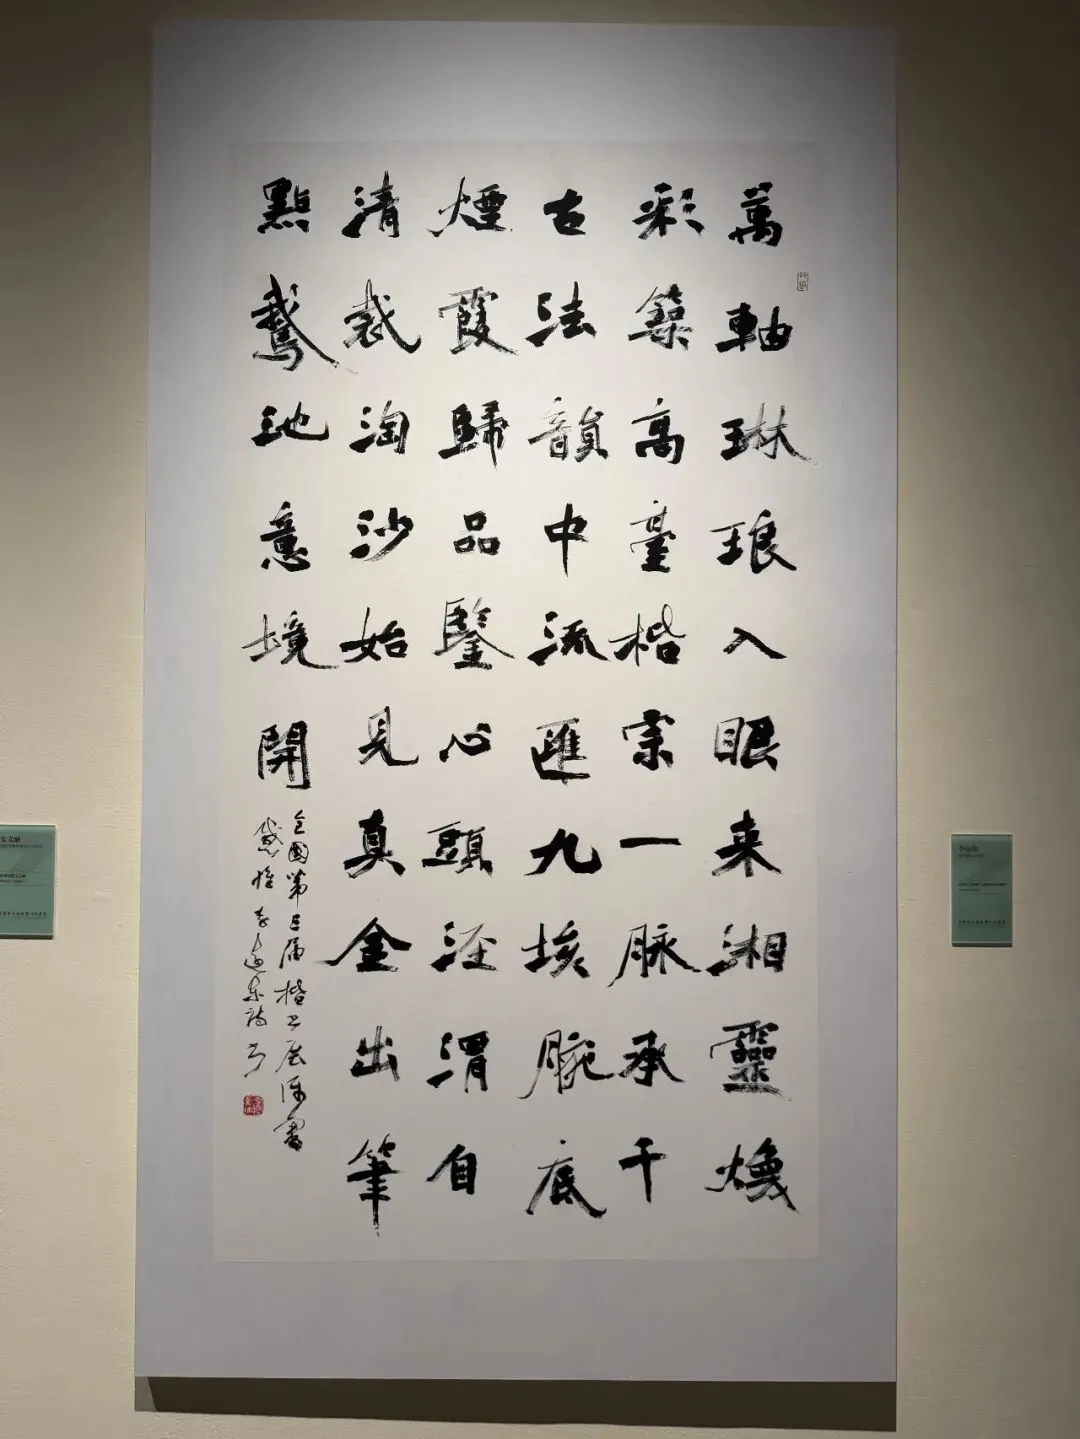 萬軸琳琅入眼来湘靈煥
彩築髙臺楷宗一脉承千
古法韻中流匯九垓腕底
煙霞歸品鑒心頭涇渭自
清裁淘沙始見真金出筆
點鵞池意境開
全國第三届楷书展評審
感懷 李遠東詩